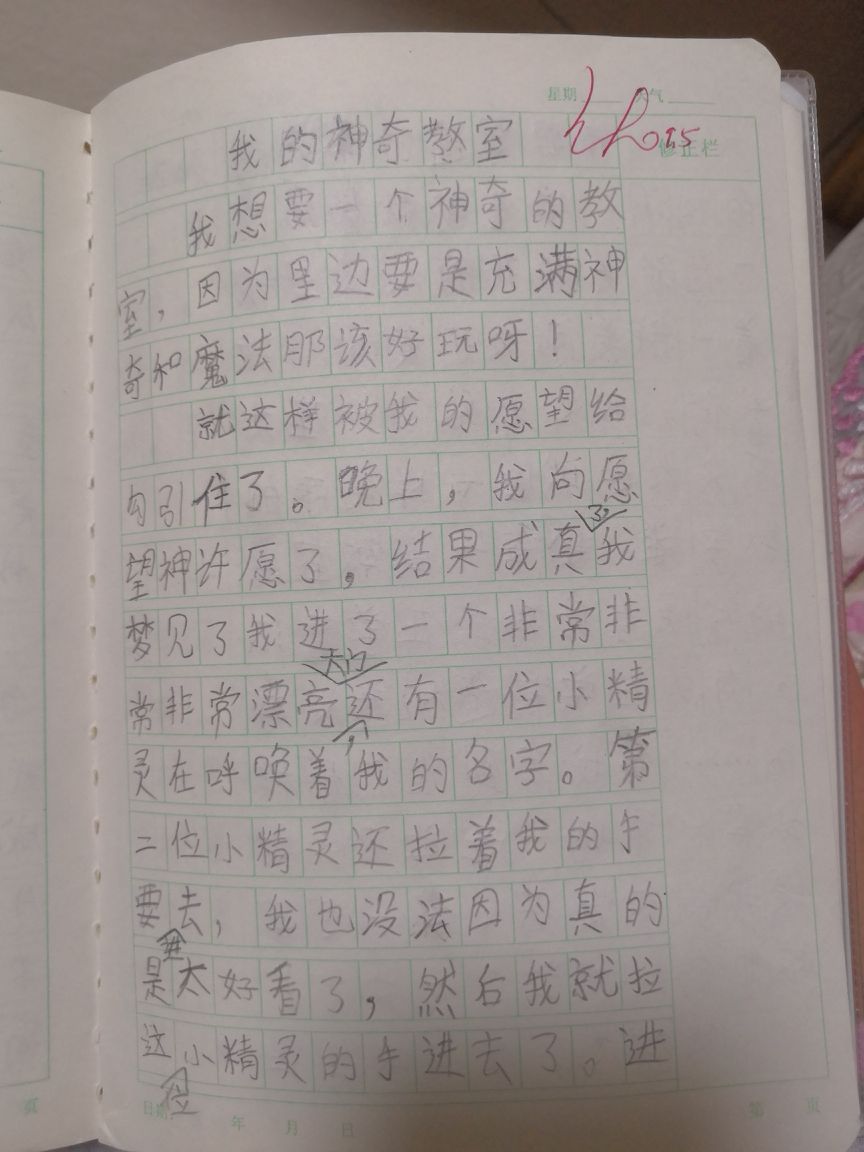 星期 气
修正栏
我的神奇教室
我想要一个神奇的教
室，因为里边要是充满神
奇和魔法那该好玩呀！
就这样被我的愿望给
勾引住了。晚上，我向愿
望神许愿了，结果成真了，我
梦见了我进了一个非常非
常非常漂亮大门，还有一位小精
灵在呼唤着我的名字。第
二位小精灵还拉着我的手
要去，我也没法因为真的
是太好看了，然后我就拉
这位小精灵的手进去了。进
页
日期 年 月 日
第 页